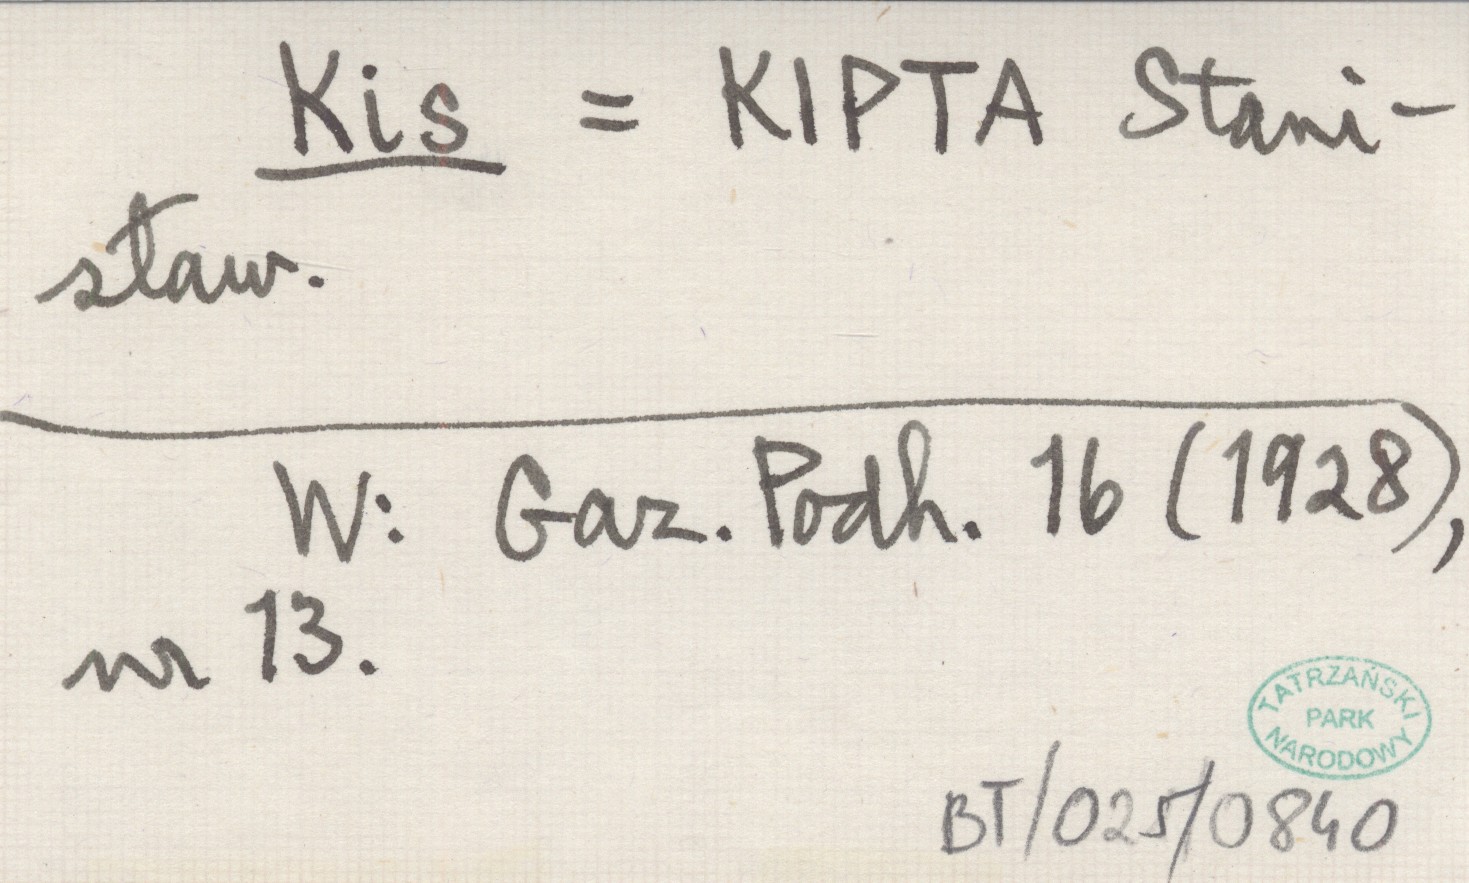 Kis = KIPTA Stani-
sław.
W: Gaz. Podh. 16 (1928),
nr 13.
TATRZAŃSKI
PARK
NARODOWY
BT/025/0840